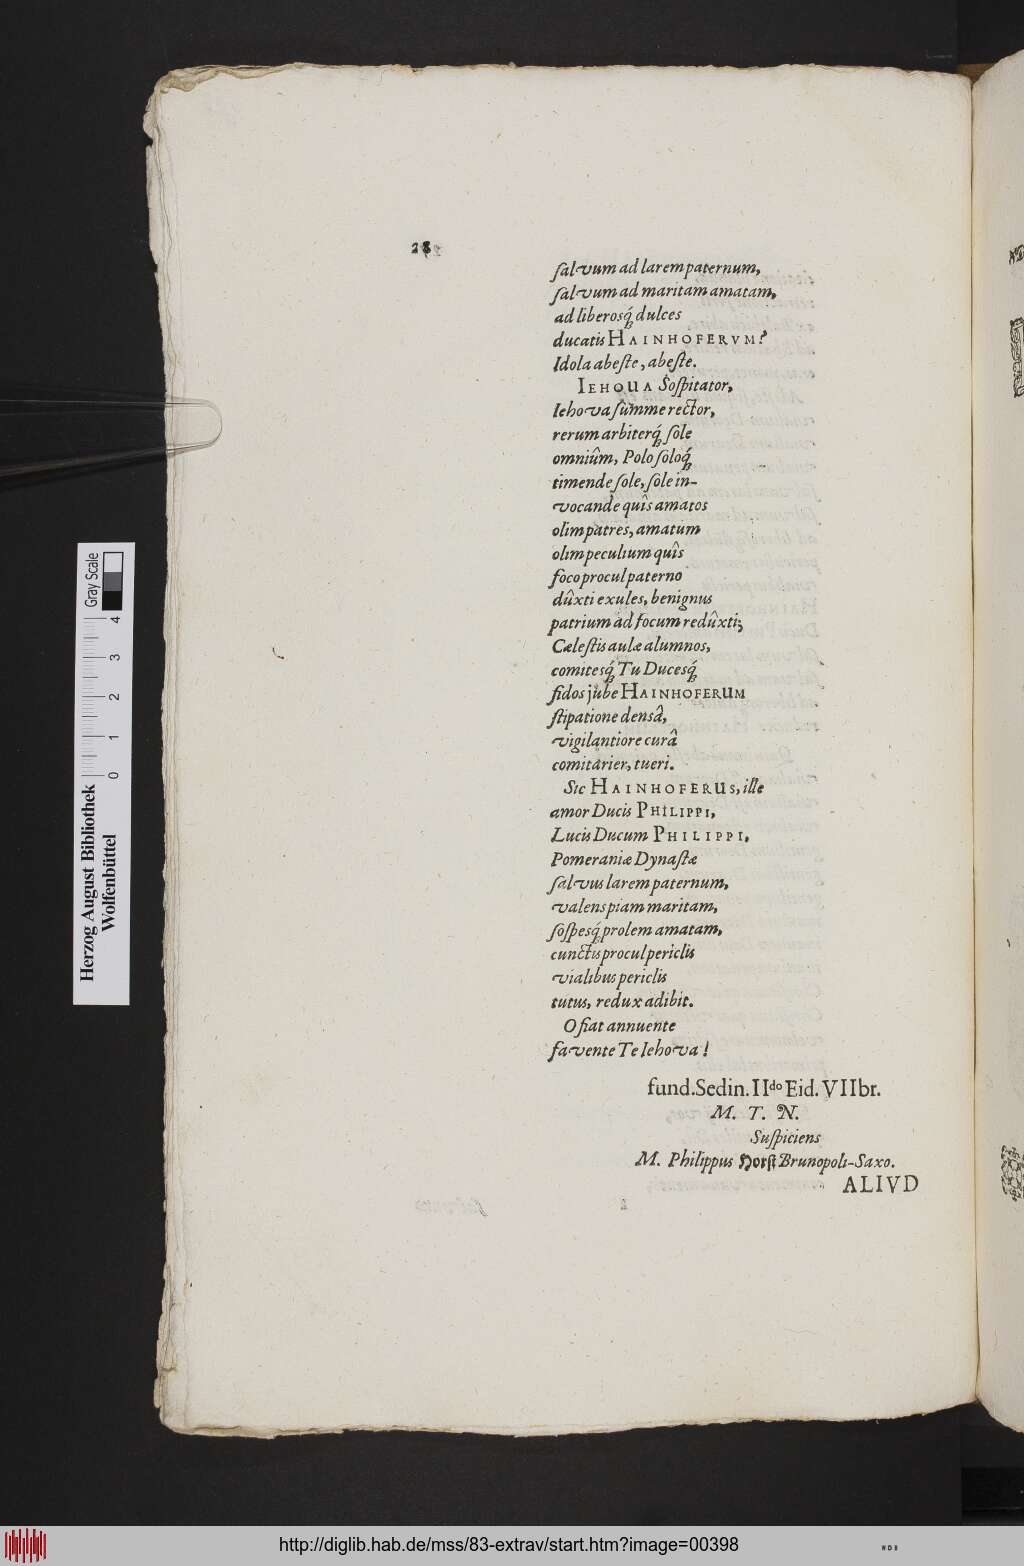 28
ſalvum ad larem paternum,
ſalvum ad maritam amatam,
ad liberosq́ꝫ dulces
ducatis HAINHOFERVM?
Idola abeſte, abeſte.
IEHOUA Soſpitator,
Iehova ſumme rector,
rerum arbiterq́ꝫ ſole
omniûm, Polo ſoloq́ꝫ
timende ſole, ſole in-
vocande quîs amatos
olim patres, amatum
olim peculium quîs
foco procul paterno
dûxti exules, benignus
patrium ad focum redûxti;
Cæleſtis aulæ alumnos,
comitesq́ꝫ Tu Ducesq́ꝫ
fidos jube HAINHOFERUM
ſtipatione densâ,
vigilantiore curâ
comitarier, tueri.
Sic HAINHOFERUS, ille
amor Ducis PHILIPPI,
Lucis Ducum PHILIPPI,
Pomeraniæ Dynaſtæ
ſalvus larem paternum,
valens piam maritam,
ſoſpesq́ꝫ prolem amatam,
cunctis procul periclis
vialibus periclis
tutus, redux adibit.
O fiat annuente
favente Te Iehova!
fund. Sedin. IIdo Eid. VIIbr.
M. T. N.
Suſpiciens
M. Philippus Horſt Brunopoli-Saxo.
ALIVD
Herzog August Bibliothek
Wolfenbüttel
0 1 2 3 4
Gray Scale
http://diglib.hab.de/mss/83-extrav/start.htm?image=00398